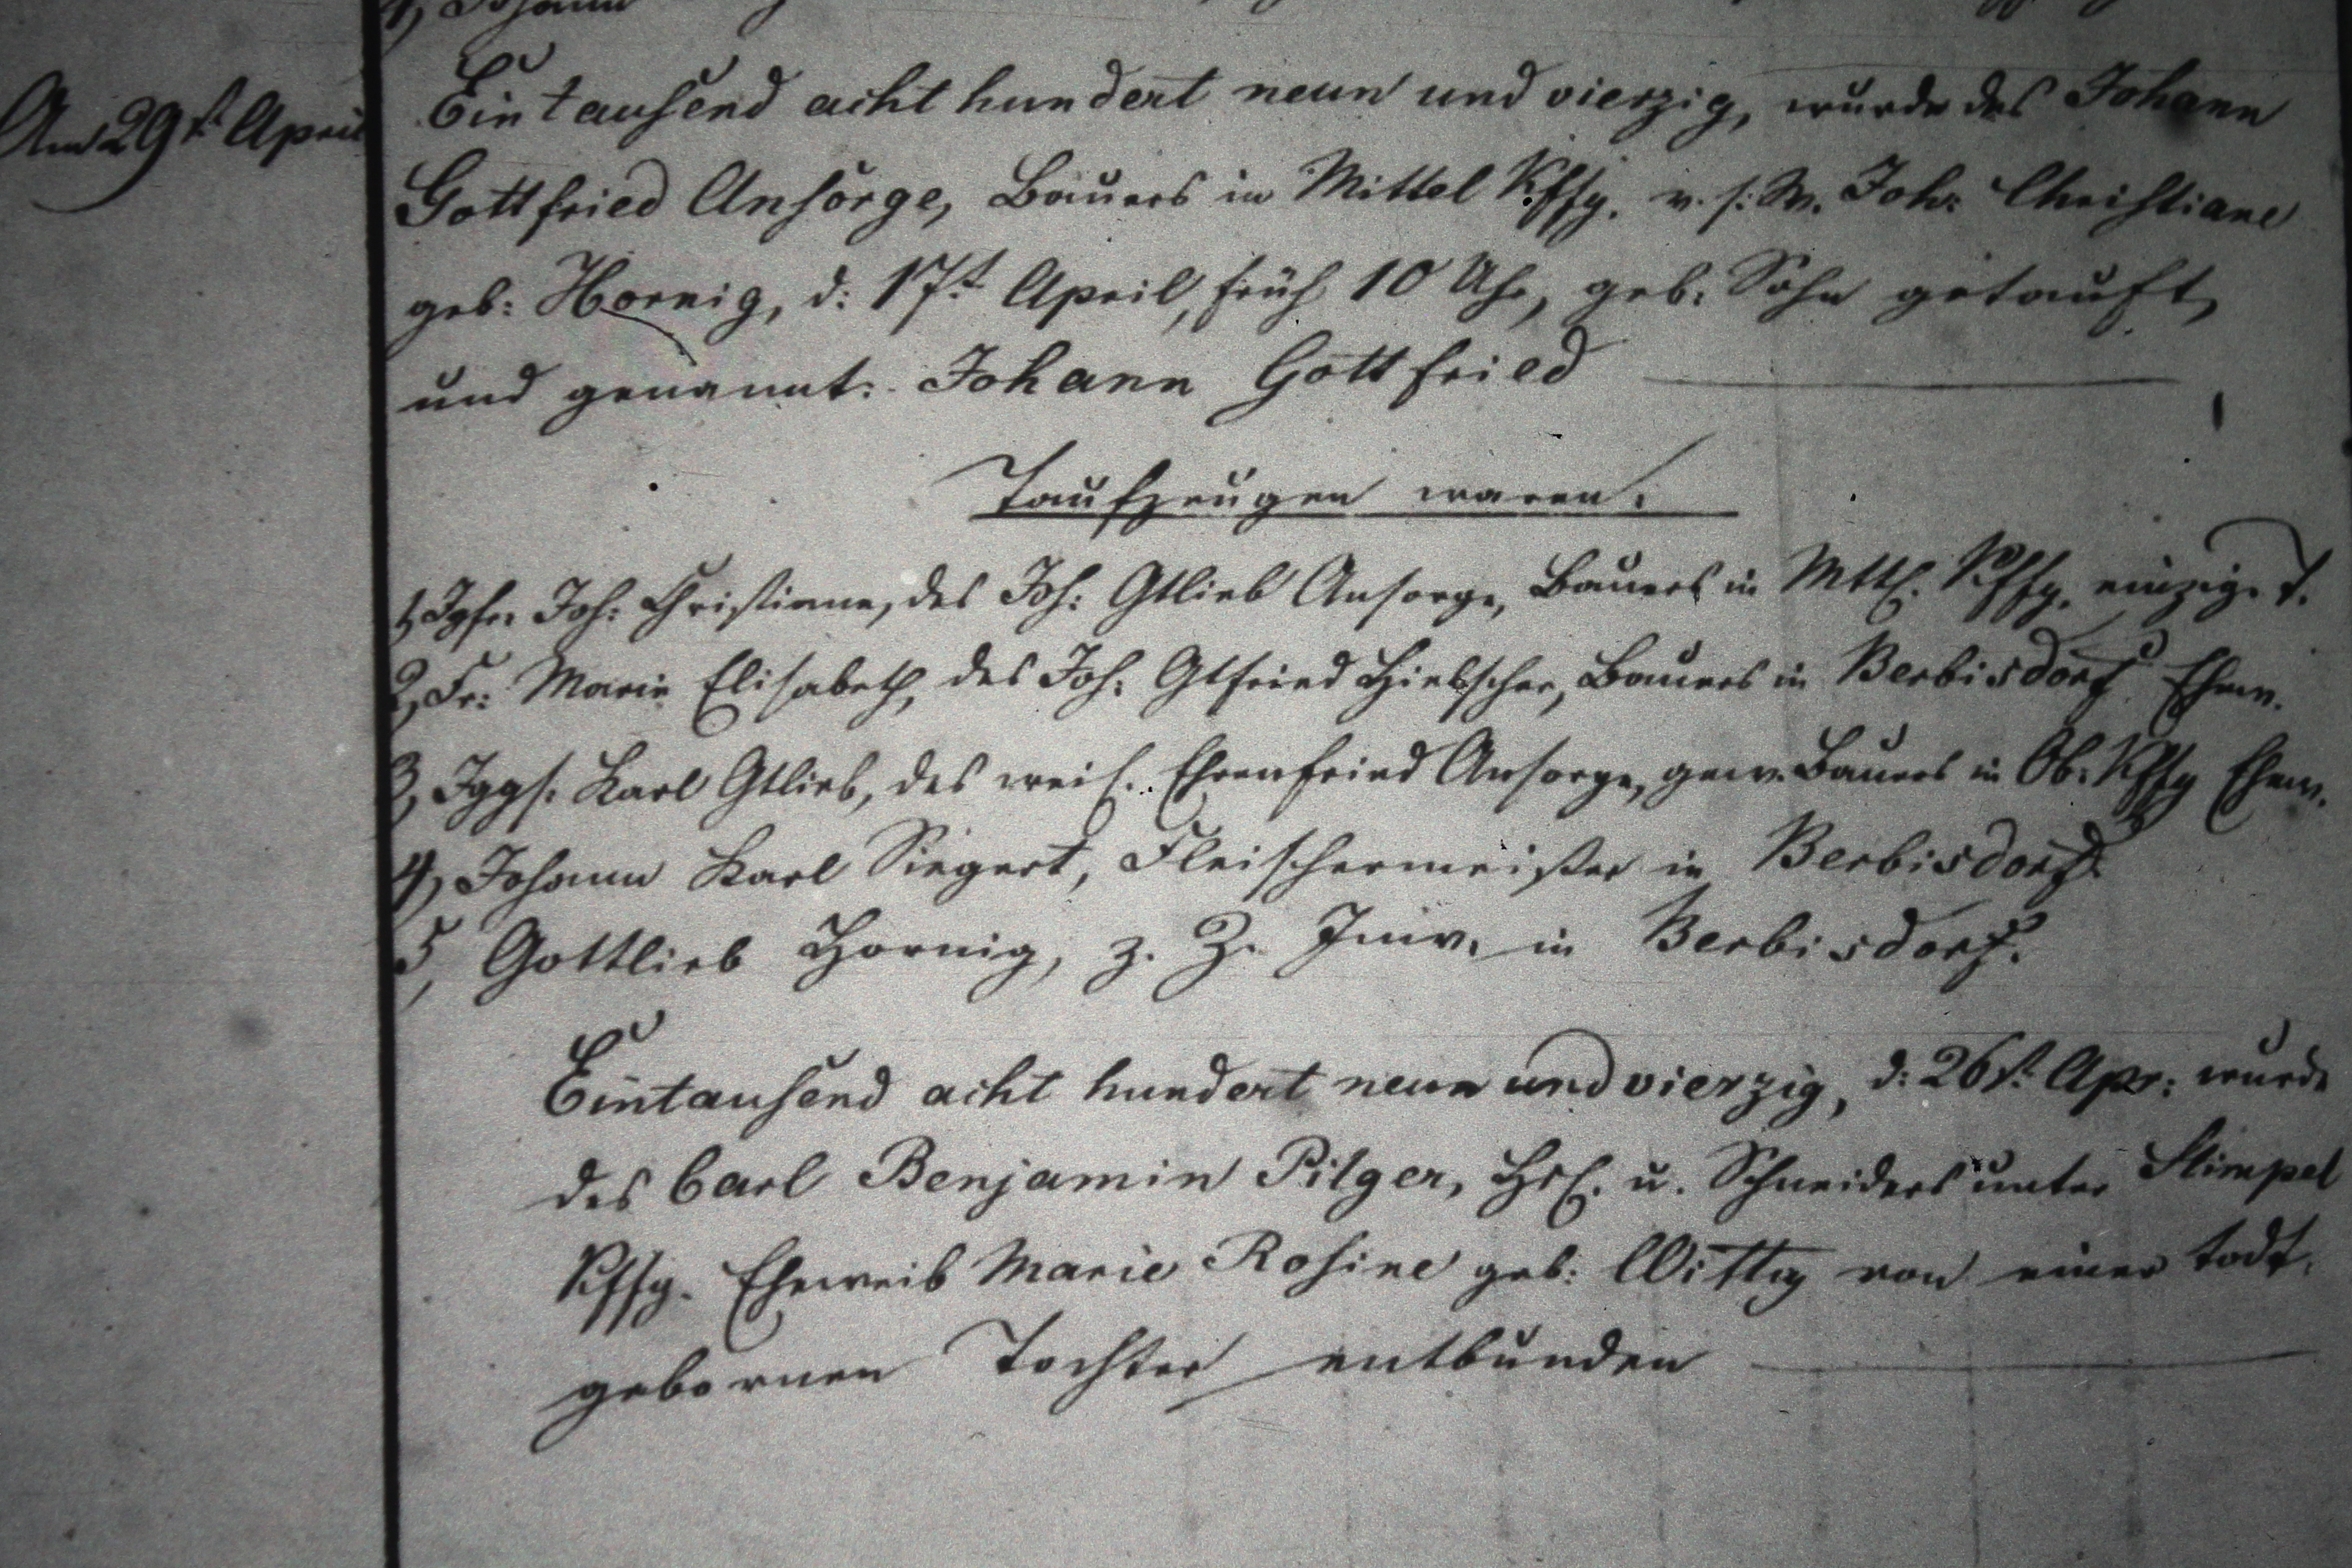 4, Johann
Am 29st April
Eintausend acht hundert neun und vierzig, wurde des Johann
Gottfried Ansorge, Bauers in Mittel Kffg. v. s. W. Joh: Christiane
geb: Hornig, d: 17t April, früh 10 Uhr, geb. Sohn getauft,
und genannt: Johann Gottfried
Taufzeugen waren:
1, Igfr. Joh: Christiane, des Joh: Gtlieb Ansorge, Bauers in Mttl. Kffg. einzige T.
2, Fr: Marie Elisabeth, des Joh: Gtfried Hielscher, Bauers in Berbisdorf Ehew.
3, Iggs. Karl Gtlieb, des weil. Ehrenfried Ansorge, gew. Bauers in Ob. Kffg
4, Johann Karl Siegert, Fleischermeister in Berbisdorf
5, Gottlieb Hornig, z. Z. Inw. in Berbisdorf.
Eintausend acht hundert neun und vierzig, d: 26st Apr: wurde
des Carl Benjamin Pilger, Hsl. u. Schneiders unter Stimpel
Kffg. Eheweib Marie Rosine geb: Wittig von einer todt
gebornen Tochter entbunden